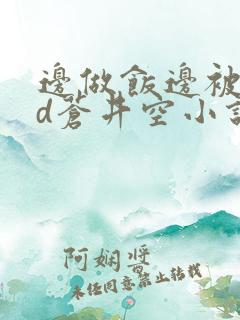 邊做飯邊被
d蒼井空小說
阿嫻將
未经同意禁止转载